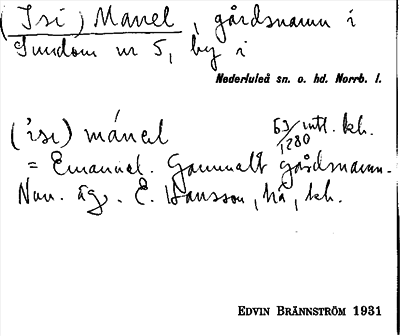 (Isi) Manel, gårdsnamn i
Sundom nr 5, by i
Nederluleå sn. o. hd. Norrb. l.
('isi) mánel 53/1280 intl. kh.
= Emanuel. Gammalt gårdsnamn.
Nuv. äg. E. Hansson, kh.
EDVIN BRÄNNSTRÖM 1931